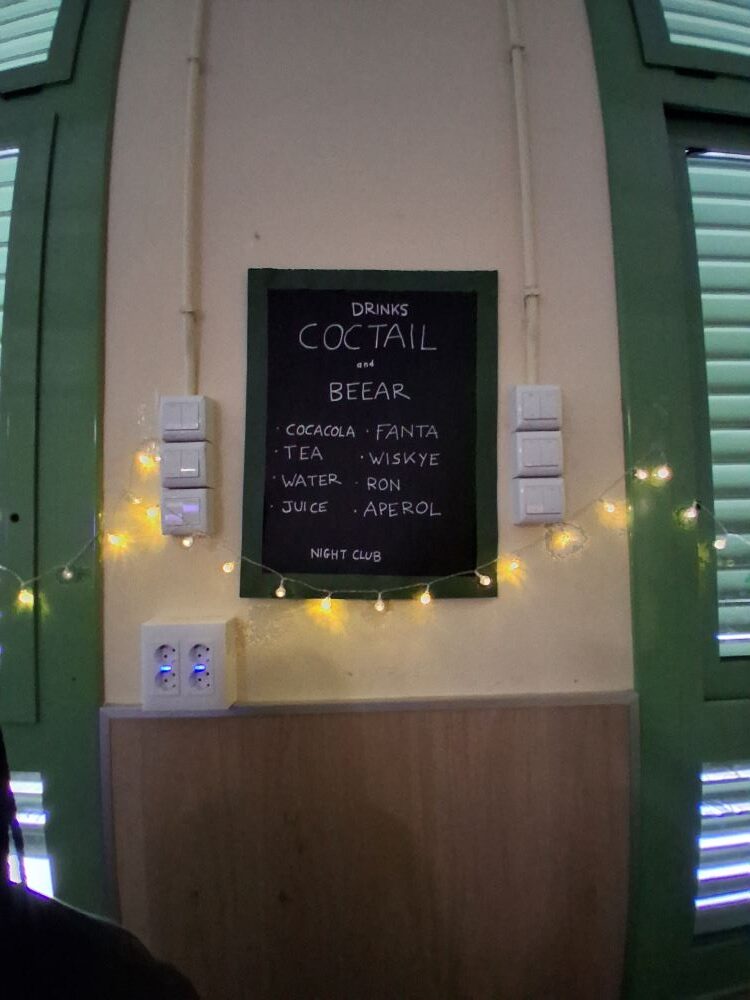 DRINKS
COCTAIL
and
BEEAR
· COCACOLA · FANTA
· TEA · WISKYE
· WATER · RON
· JUICE · APEROL
NIGHT CLUB